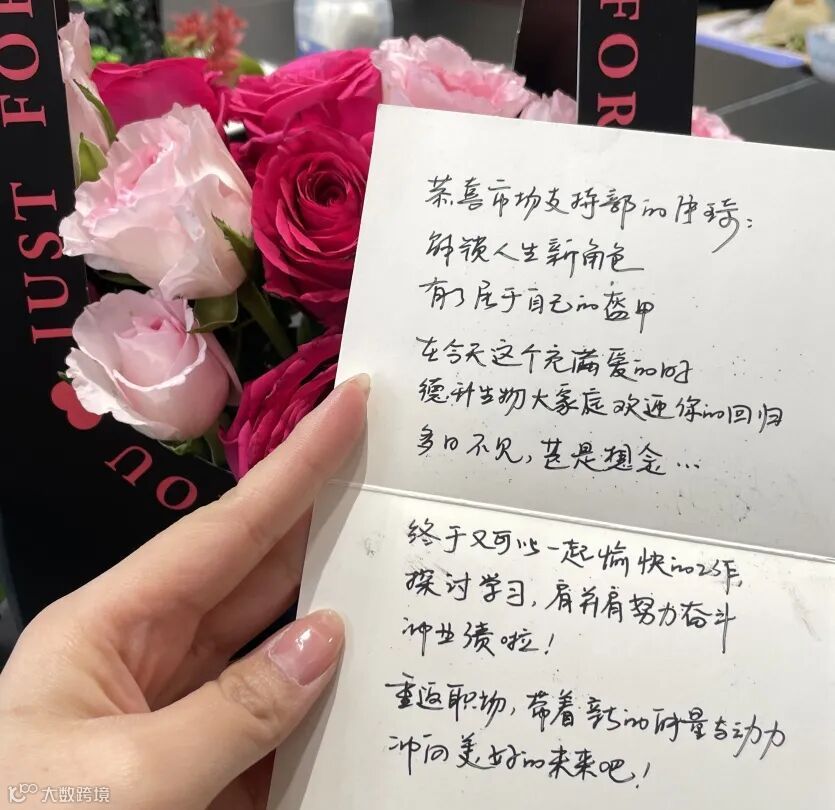 JUST FOR
YOU
FOR
恭喜市场支持部的津琦:
解锁人生新角色
有了属于自己的盔甲
在今天这个充满爱的时
德升生物大家庭欢迎你的回归
多日不见,甚是想念...
终于又可以一起愉快的工作,
探讨学习,肩并肩努力奋斗
冲业绩啦!
重返职场,带着新的能量与动力
冲向美好的未来吧!
大数跨境